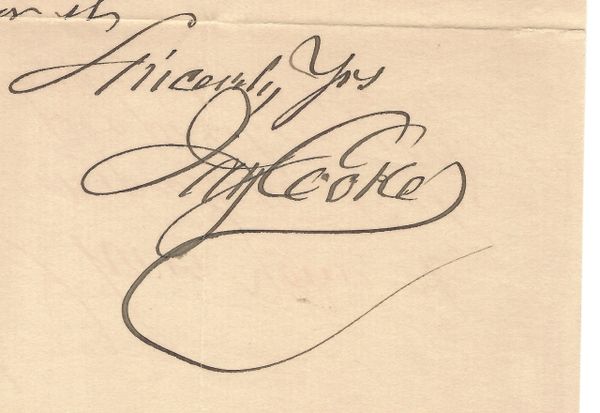 Sincerely Yrs
Jay Cooke